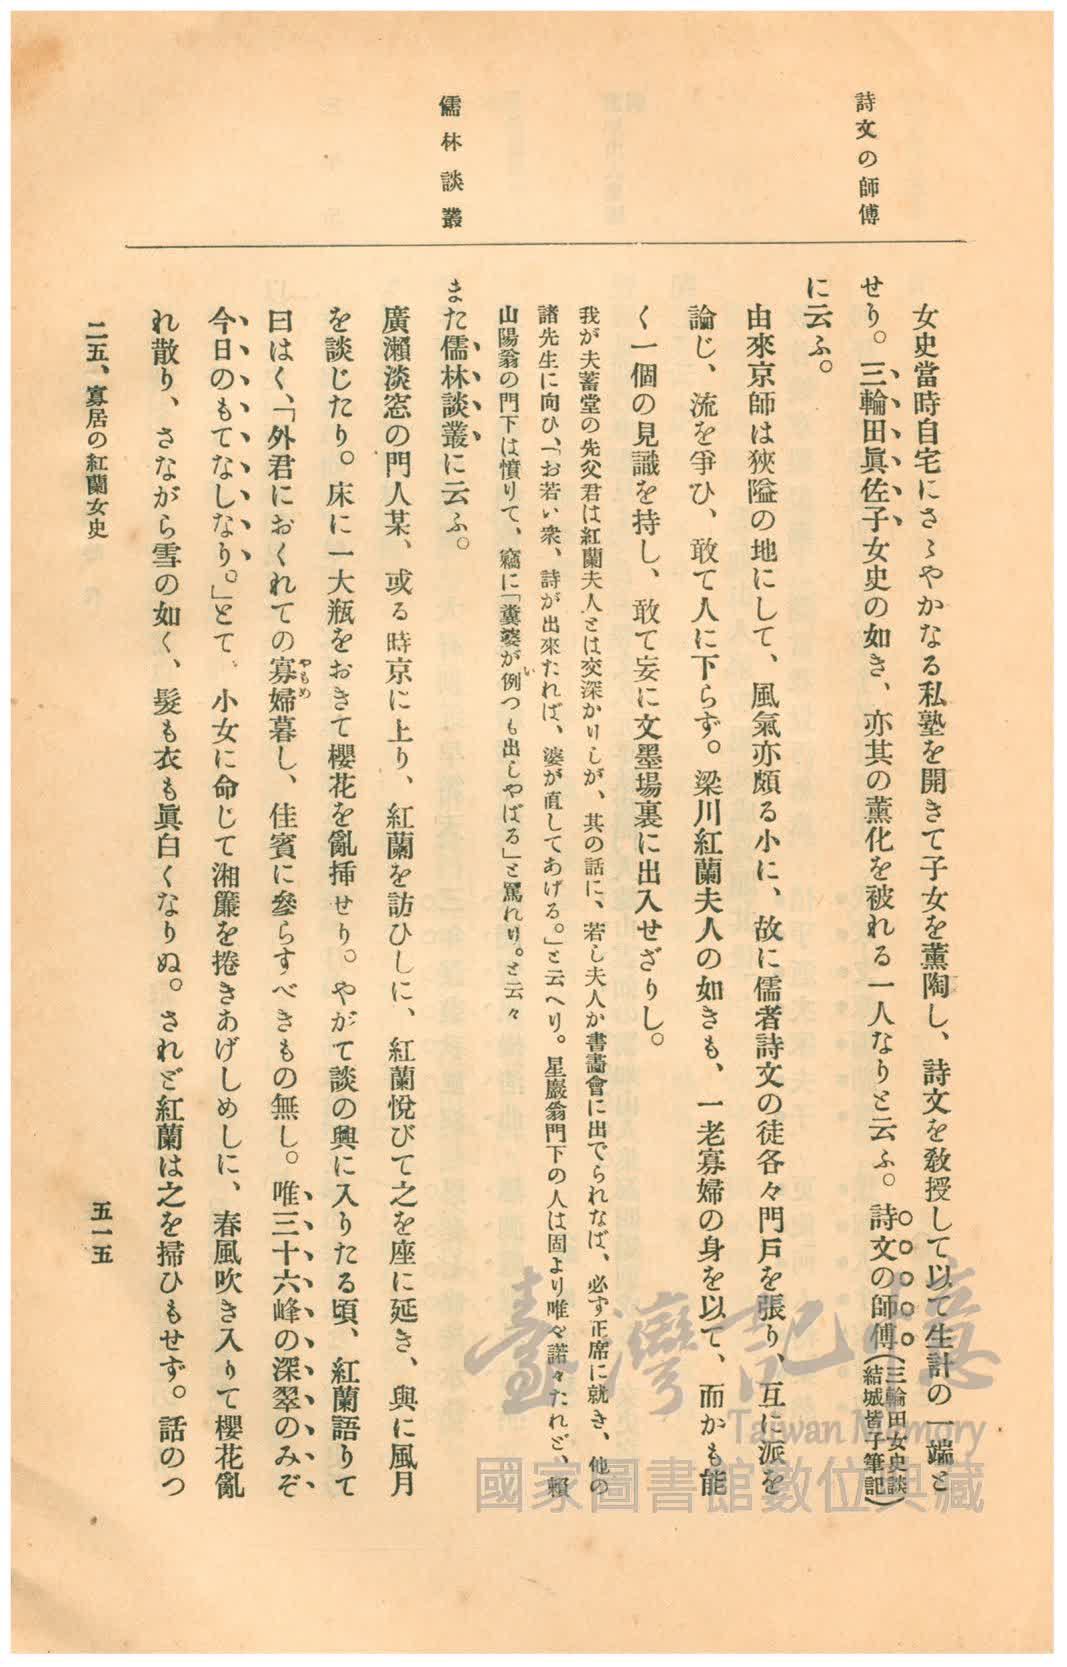 詩文の師傅
儒林談叢
女史當時自宅にさゝやかなる私塾を開きて子女を薰陶し、詩文を敎授して以て生計の一端と
せり。三輪田眞佐子女史の如き、亦其の薰化を被れる一人なりと云ふ。詩文の師傅(三輪田女史談 結城皆子筆記)
に云ふ。
由來京師は狹隘の地にして、風氣亦頗る小に、故に儒者詩文の徒各々門戶を張り、互に派を
論じ、流を爭ひ、敢て人に下らず。梁川紅蘭夫人の如きも、一老寡婦の身を以て、而かも能
く一個の見識を持し、敢て妄に文墨場裏に出入せざりし。
我が夫蓄堂の先父君は紅蘭夫人とは交深かりしが、其の話に、若し夫人か書畵會に出でられなば、必ず正席に就き、他の
諸先生に向ひ、「お若い衆、詩が出來たれば、婆が直してあげる。」と云へり。星巖翁門下の人は固より唯々諾々たれど、賴
山陽翁の門下は憤りて、竊に「糞婆が例つも出しやばる」と罵れり。と云々
また儒林談叢に云ふ。
廣瀨淡窓の門人某、或る時京に上り、紅蘭を訪ひしに、紅蘭悅びて之を座に延き、與に風月
を談じたり。床に一大瓶をおきて櫻花を亂揷せり。やがて談の興に入りたる頃、紅蘭語りて
曰はく、「外君におくれての寡婦暮し、佳賓に參らすべきもの無し。唯三十六峰の深翠のみぞ
今日のもてなしなり。」とて、小女に命じて湘簾を捲きあげしめしに、春風吹き入りて櫻花亂
れ散り、さながら雪の如く、髮も衣も眞白くなりぬ。されど紅蘭は之を掃ひもせず。話のつ
二五、寡居の紅蘭女史
五一五
臺灣記憶
Taiwan Memory
國家圖書館數位典藏